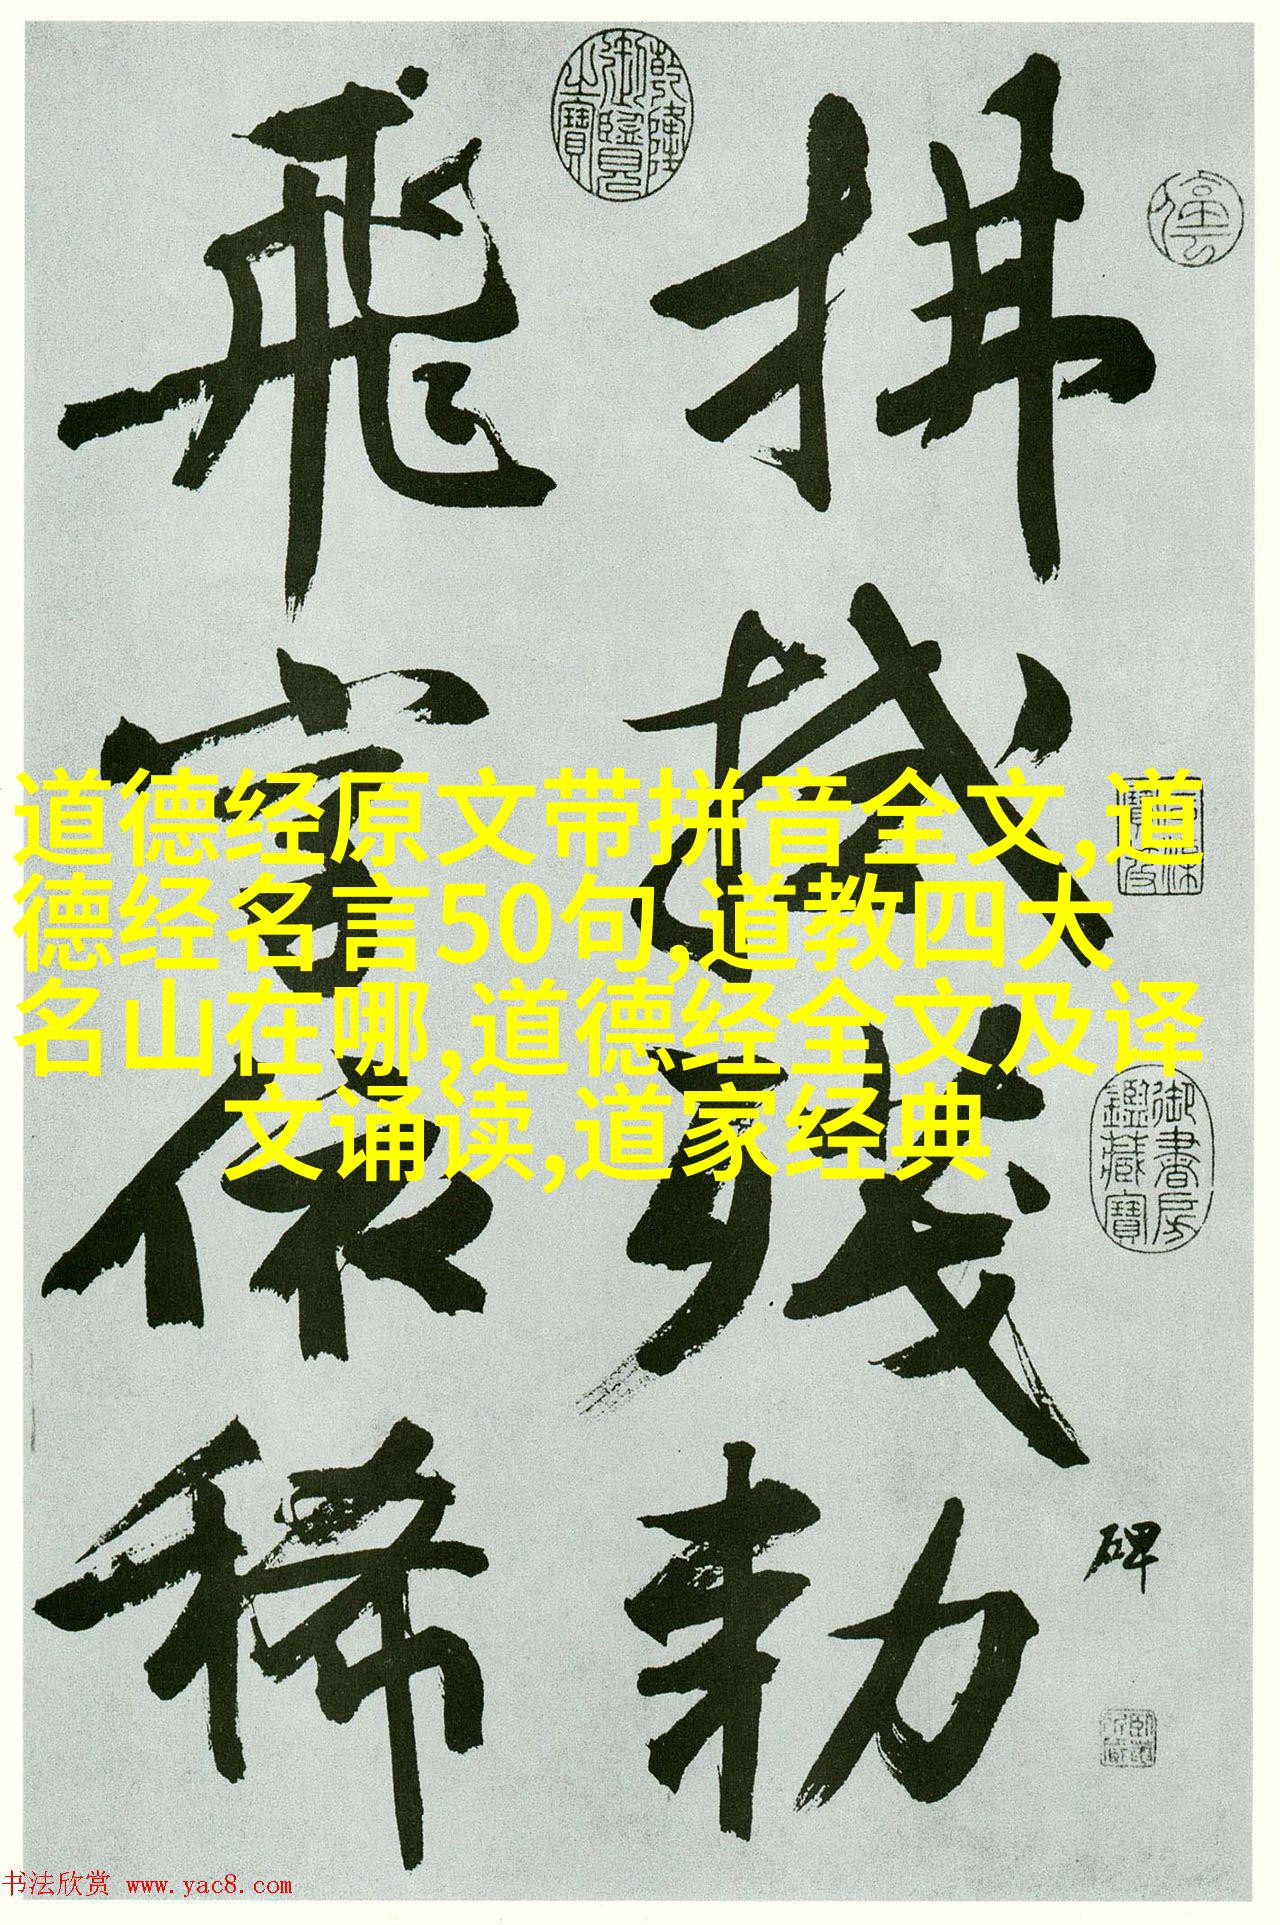 拂拭残勒
碑
飛字依稀
乾隆御覽之寶
御書房鑑藏寶
道德经原文带拼音全文,道
德经名言50句,道教四大
名山在哪,道德经全文及译
文诵读,道家经典
书法欣赏 www.yac8.com